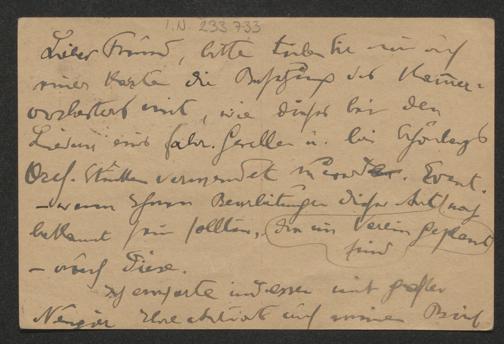 I.N. 233.733
Lieber Freund, bitte teilen Sie mir auf
einer Karte die Besetzung des Kammer-
orchesters mit, wie dieses bei den
Liedern eines fahr. Gesellen u. bei Schönbergs
Orch. Stücken verwendet wurde. Event.
– wenn Ihnen Bearbeitungen dieser Art noch
bekannt sein sollten, die im Verein geplant
sind
– auch diese.
Ich erwarte indessen mit großer
Neugier Ihre Antwort auf meinen Brief